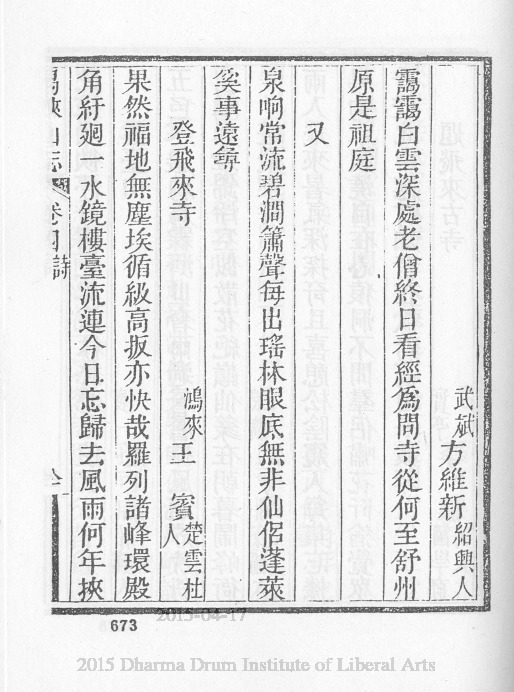 武斌方維新紹興人
靄靄白雲深處老僧終日看經爲問寺從何至舒州
原是祖庭
又
泉响常流碧澗簫聲每出瑤林眼底無非仙侶蓬萊
奚事遠尋
登飛來寺
鴻來王賓楚雲杜人
果然福地無塵埃循級高扳亦快哉羅列諸峰環殿
角紆廻一水鏡樓臺流連今日忘歸去風雨何年挾
禺峽山志 卷四 詩
673
2015-04-17
2015 Dharma Drum Institute of Liberal Arts